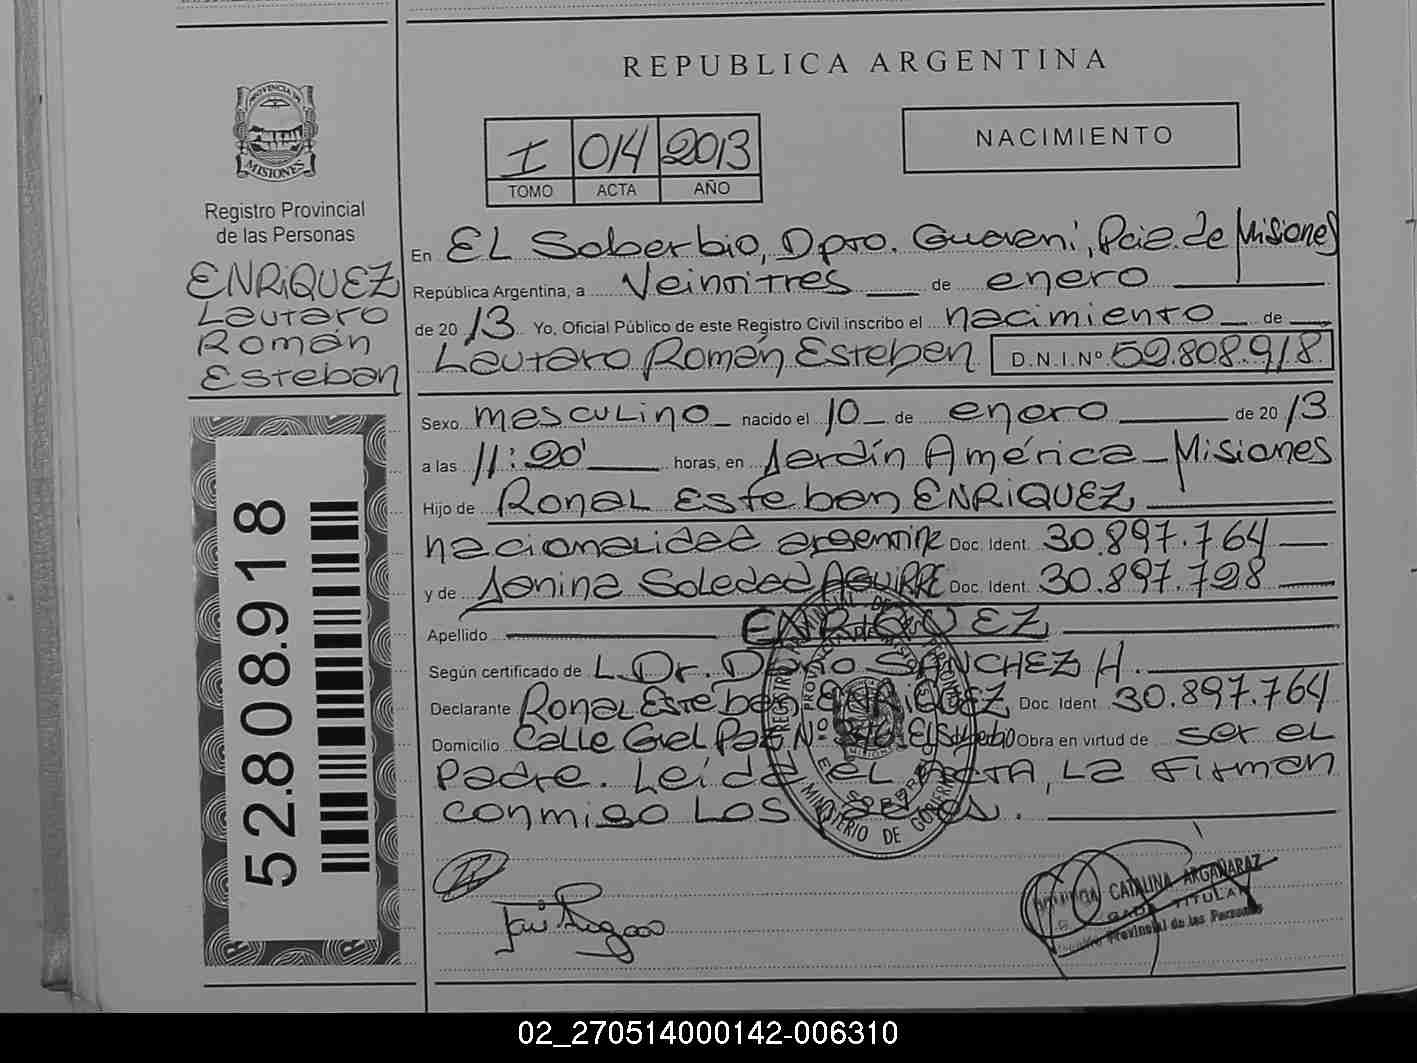 REPUBLICA ARGENTINA
PROVINCIA DE
MISIONES
Registro Provincial
de las Personas
ENRIQUEZ
Lautaro
Román
Esteban
52.808.918
I 014 2013
TOMO ACTA AÑO
NACIMIENTO
En EL Soberbio, Dpto. Guaraní, Pcia. de Misiones
República Argentina, a Veintitres de enero
de 2013 Yo, Oficial Público de este Registro Civil inscribo el nacimiento de
Lautaro Román Esteban D.N.I.Nº 52.808.918
Sexo masculino nacido el 10 de enero de 2013
a las 11:20' horas, en Jardín América - Misiones
Hijo de Ronal Esteban ENRIQUEZ
nacionalidad argentina Doc. Ident. 30.897.764
y de Janina Soledad AGUIRRE Doc. Ident. 30.897.728
Apellido ENRIQUEZ
Según certificado de L. Dr. Darío SANCHEZ H.
Declarante Ronal Esteban ENRIQUEZ Doc. Ident. 30.897.764
Domicilio Calle Gral Paz Nº El Soberbio Obra en virtud de ser el
Padre. Leída el ACTA, La Firman
conmigo Los padres.
MINISTERIO DE GOBIERNO
CATALINA ARGAÑARAZ
TITULAR
Provincial de las Personas
02_270514000142-006310